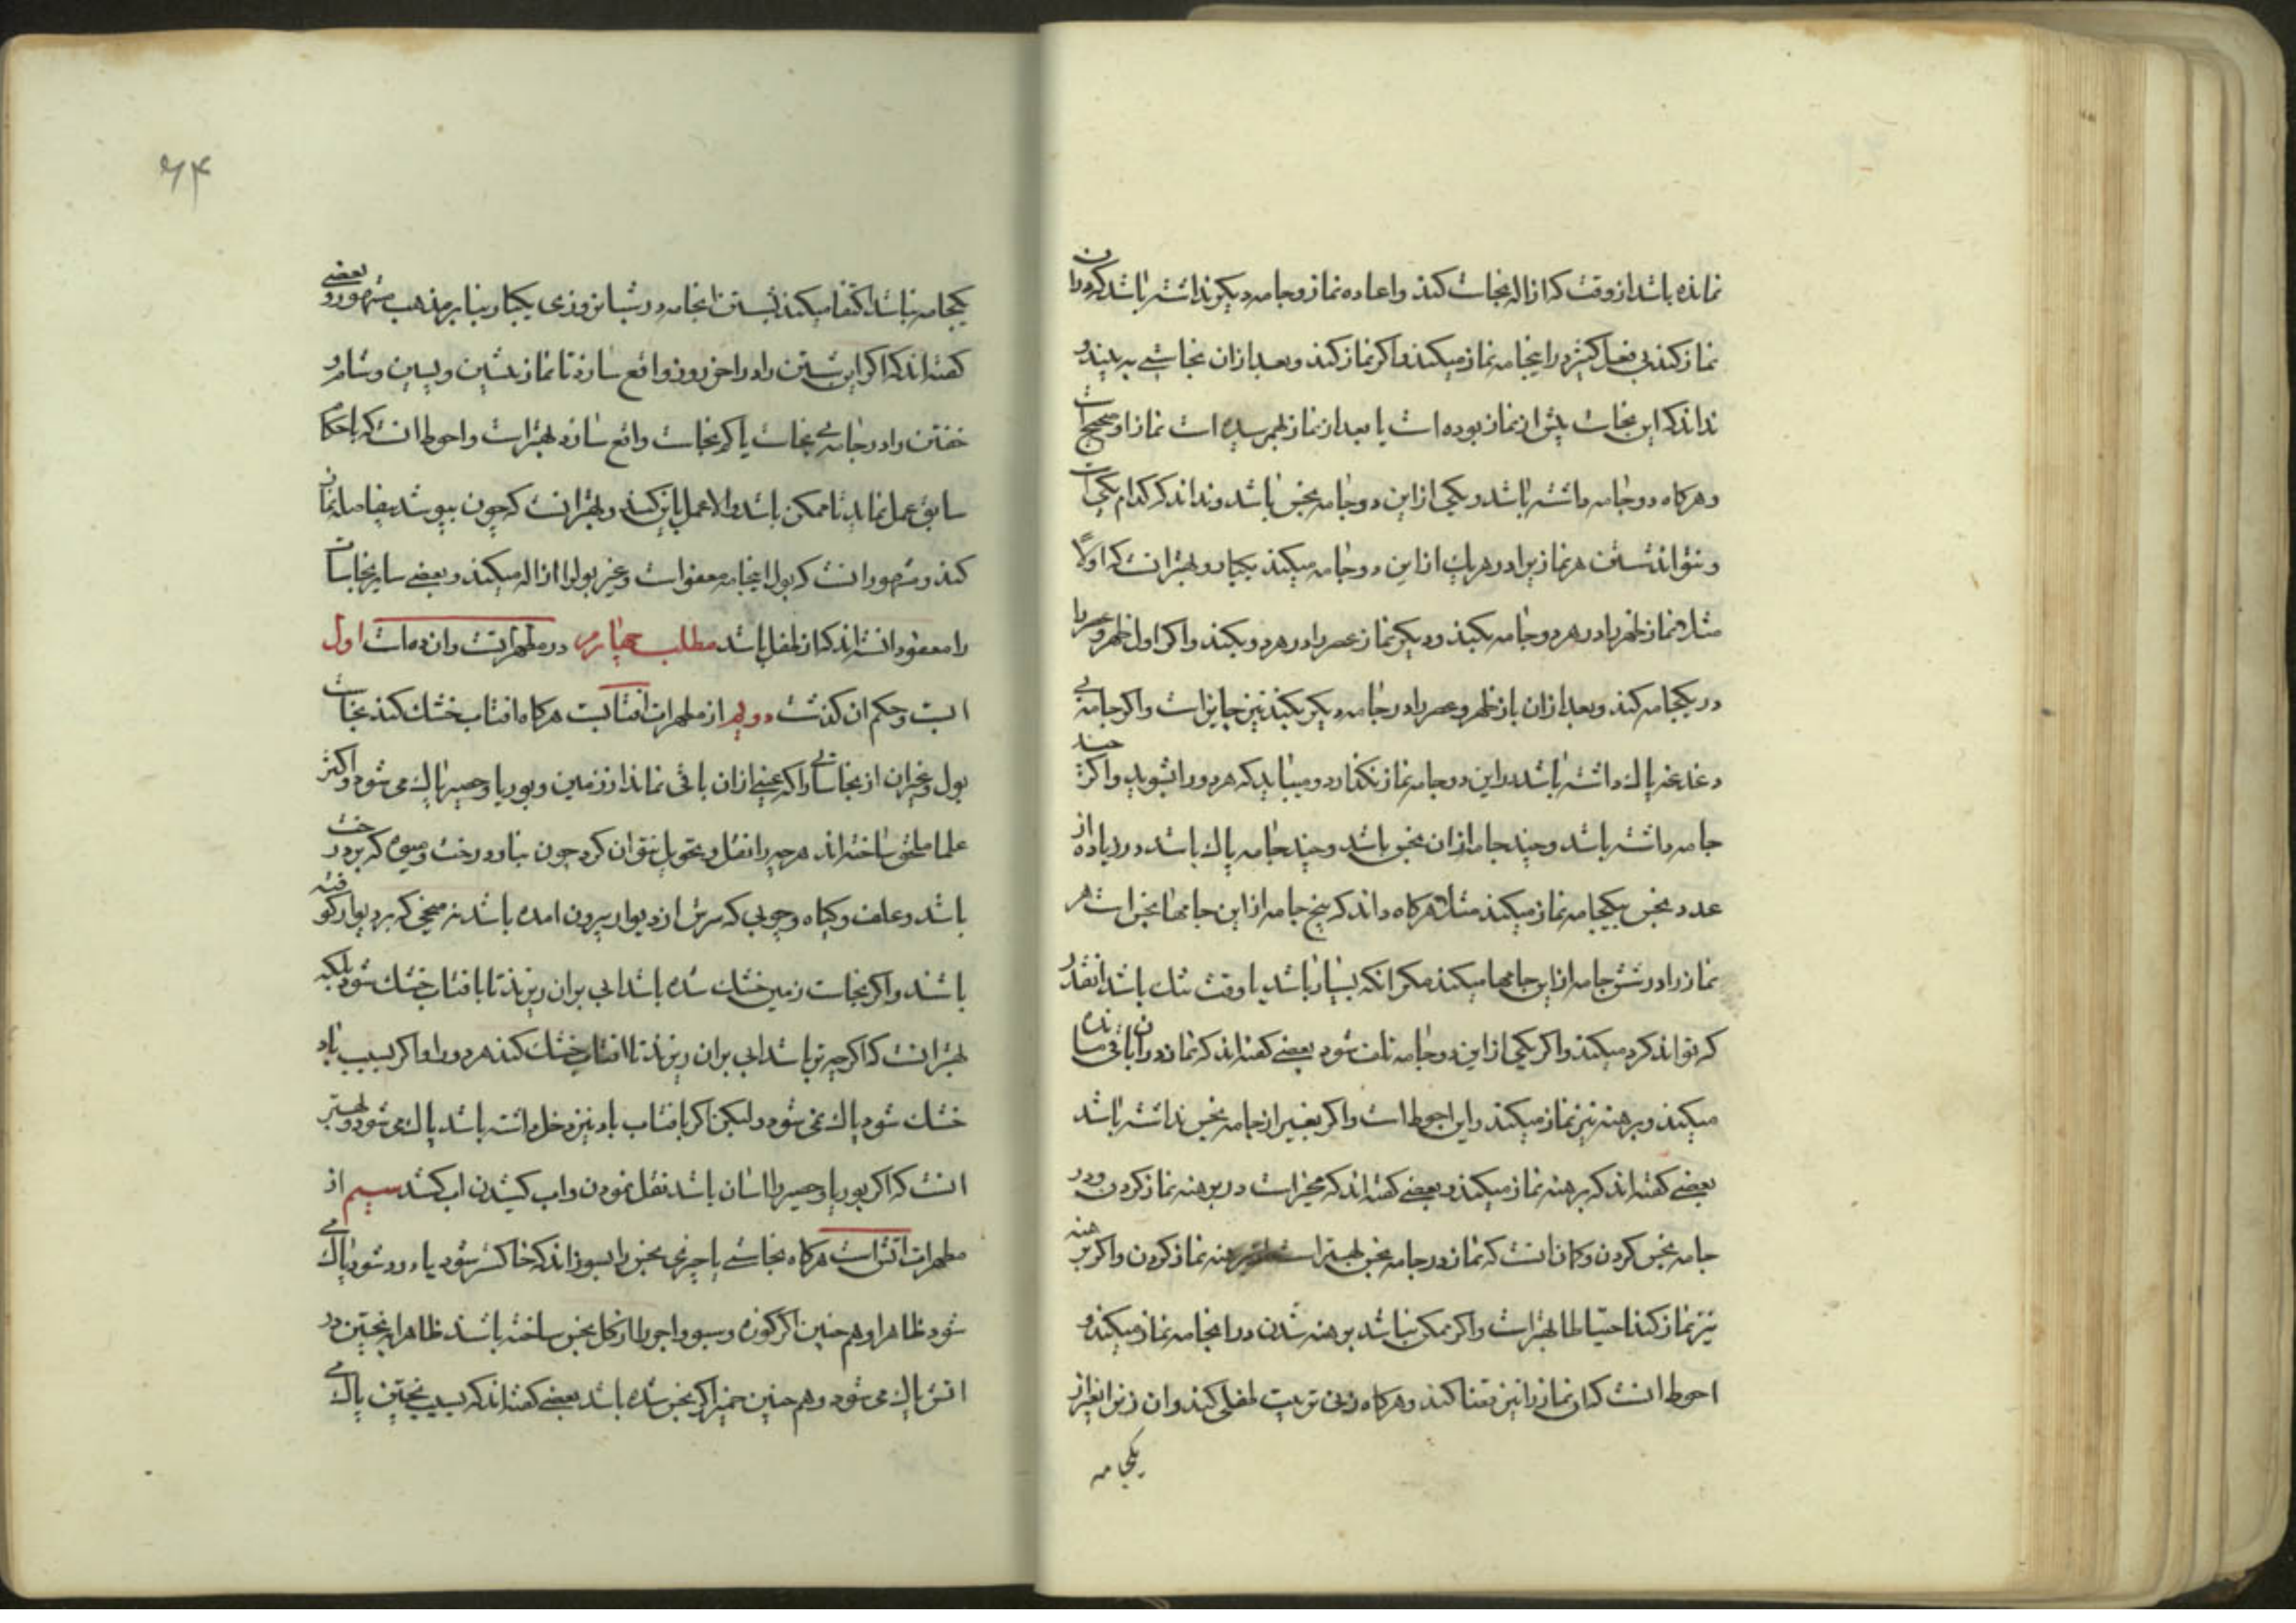 نمانده باشد از وقت که ازاله نجاست کند و اعاده نماز و جامه دیکر نداشته باشد که در ان
نماز کند بی فعل کثیر در اینجامه نماز میکند و اکر نماز کند و بعد از ان نجاستی به بیند و
نداند که این نجاست پیش از نماز بوده است یا بعد از نماز بهمرسیده است نماز او صحیح است
و هرکاه دو جامه داشته باشد و یکی از این دو جامه نجس باشد و نداند که کدام یکی است
و نتواند شستن هر نمازیرا در هر یك از این دو جامه میکند یکبار و بهتر انست که اولا
مثلا نماز ظهر را در هر دو جامه بکند و دیکر نماز عصر را در هر دو بکند و اکر اول ظهر و عصر را
در یکجامه کند و بعد از ان باز ظهر و عصر را در جامه دیکر بکند نیز جایز است و اکر جامه بی
دغدغه پاك داشته باشد در این دو جامه نماز نکذارد و میباید که هر دو را بشوید و اکر چند
جامه داشته باشد و چند جامه از ان نجس باشد و چند جامه پاك باشد در زیاده از
عدد نجس بیکجامه نماز میکند مثلا هرکاه داند که پنج جامه از این جامها نجس است هر
نماز را در شش جامه از این جامها میکند مکر انکه بسیار باشد یا وقت تنك باشد انقدر
که تواند کرد میکند و اکر یکی از این دو جامه تلف شود بعضی کفته اند که نماز در ان باقی مانده
میکند و برهنه نیز نماز میکند و این احوط است و اکر بغیر از جامه نجس نداشته باشد
بعضی کفته اند که برهنه نماز میکند و بعضی کفته اند که مخیر است در برهنه نماز کردن و در
جامه نجس کردن و کمان انست که نماز در جامه نجس بهتر است از برهنه نماز کردن و اکر برهنه
نیز نماز کند احتیاطا بهتر است و اکر ممکن نباشد برهنه شدن در انجامه نماز میکند و
احوط انست که ان نماز را نیز قضا کند و هرکاه زنی تربیت طفلی کند و ان زن را بغیر از
یکجامه
۶۴
یکجامه نباشد اکتفا میکند بشستن انجامه در شبانروزی یکبار بنابر مذهب مشهور و بعضی
کفته اند که اکر این شستن را در اخر روز واقع سازد تا نماز پیشین و پسین و شام و
خفتن را در جامه بی نجاست یا کم نجاست واقع سازد بهتر است و احوط انست که باحکام
سابق عمل نماید تا ممکن باشد و الا عمل باین کند و بهتر انست که چون بپوشد بیفاصله نماز
کند و مشهور انست که بول اینجامه معفو است و غیر بول را ازاله میکند و بعضی سایر نجاسات
را معفو دانسته اند که از طفل باشد مطلب چهارم در مطهراتست و ان ده است اول
ابست و حکم ان کذشت دویم از مطهرات افتابست هرکاه افتاب خشك کند نجاست
بول و غیر ان از نجاساتی را که عینی از ان باقی نماند از زمین و بوریا و حصیر پاك می شود و اکثر
علما ملحق ساخته اند هرچه را نقل و تحویل نتوان کرد چون بنا و درخت و میوه که بر درخت
باشد و علف و کیاه و چوبی که سرش از دیوار بیرون امده باشد نه میخی که بر دیوار کوفته
باشند و اکر نجاست زمین خشك شده باشد ابی بران ریزند تا بافتاب خشك شود بلکه
بهتر انست که اکرچه تر باشد ابی بران ریزند تا افتاب خشك کند هر دو را و اکر بسبب باد
خشك شود پاك نمی شود و لیکن اکر با افتاب باد نیز دخل داشته باشد پاك می شود و بهتر
انست که اکر بوریا و حصیر را اسان باشد نقل نمودن و اب کشیدن اب کشند سیم از
مطهرات اتش است هرکاه نجاستی یا چیزی نجس را بسوزاند که خاکستر شود یا دود شود پاك می
شود ظاهرا و هم چنین اکر کوزه و سبو و اجر را از کل نجس ساخته باشند ظاهرا به پختن در
اتش پاك می شود و هم چنین خمیر اکر نجس شده باشد بعضی کفته اند که بسبب پختن پاك می